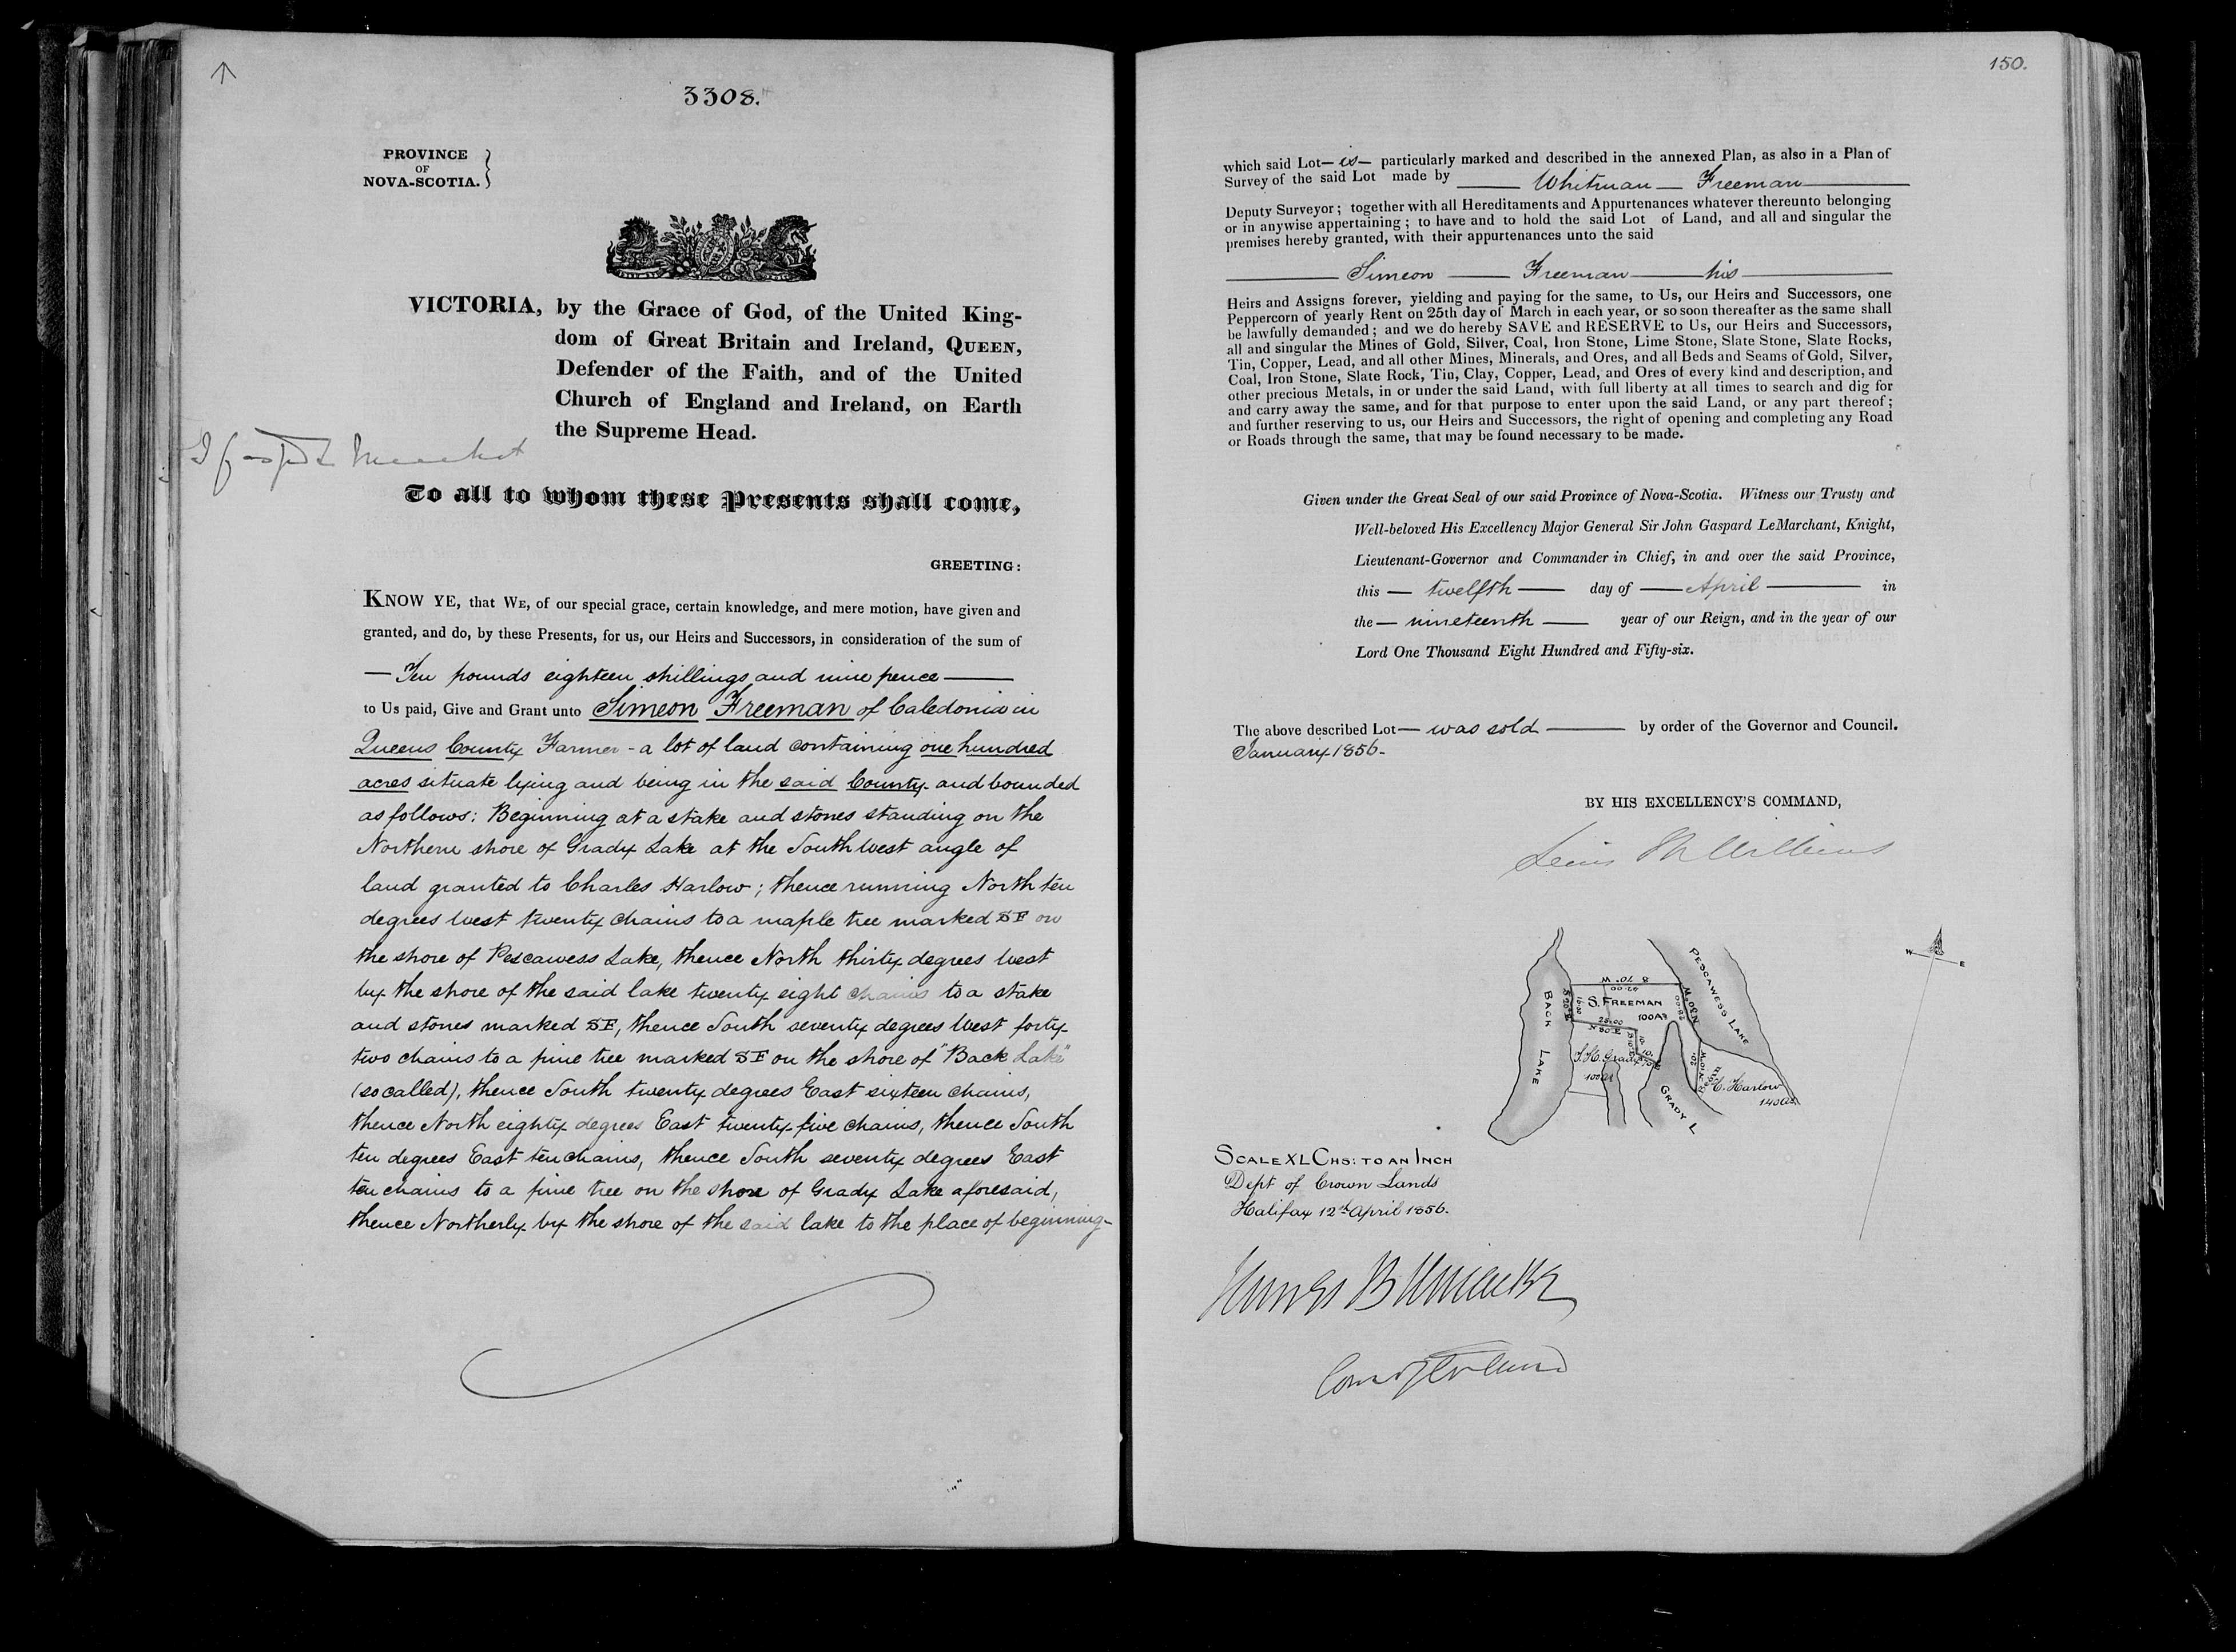 3308.
PROVINCE
OF
NOVA-SCOTIA.
VICTORIA, by the Grace of God, of the United King-
dom of Great Britain and Ireland, QUEEN,
Defender of the Faith, and of the United
Church of England and Ireland, on Earth
the Supreme Head.
To all to whom these Presents shall come,
GREETING:
KNOW YE, that WE, of our special grace, certain knowledge, and mere motion, have given and
granted, and do, by these Presents, for us, our Heirs and Successors, in consideration of the sum of
— Ten pounds eighteen shillings and nine pence —
to Us paid, Give and Grant unto Simeon Freeman of Caledonia in
Queens County Farmer - a lot of land containing one hundred
acres situate lying and being in the said County and bounded
as follows: Beginning at a stake and stones standing on the
Northern shore of Grady Lake at the South West angle of
land granted to Charles Harlow; thence running North ten
degrees West twenty chains to a maple tree marked SF on
the shore of Pescawess Lake, thence North thirty degrees West
by the shore of the said lake twenty eight chains to a stake
and stones marked SF, thence South seventy degrees West forty
two chains to a pine tree marked SF on the shore of "Back Lake"
(so called), thence South twenty degrees East sixteen chains,
thence North eighty degrees East twenty-five chains, thence South
ten degrees East ten chains, thence South seventy degrees East
ten chains to a pine tree on the shore of Grady Lake aforesaid,
thence Northerly by the shore of the said lake to the place of beginning-
150.
which said Lot — is — particularly marked and described in the annexed Plan, as also in a Plan of
Survey of the said Lot made by — Whitman — Freeman —
Deputy Surveyor; together with all Hereditaments and Appurtenances whatever thereunto belonging
or in anywise appertaining; to have and to hold the said Lot of Land, and all and singular the
premises hereby granted, with their appurtenances unto the said
— Simeon — Freeman — his —
Heirs and Assigns forever, yielding and paying for the same, to Us, our Heirs and Successors, one
Peppercorn of yearly Rent on 25th day of March in each year, or so soon thereafter as the same shall
be lawfully demanded; and we do hereby SAVE and RESERVE to Us, our Heirs and Successors,
all and singular the Mines of Gold, Silver, Coal, Iron Stone, Lime Stone, Slate Stone, Slate Rocks,
Tin, Copper, Lead, and all other Mines, Minerals, and Ores, and all Beds and Seams of Gold, Silver,
Coal, Iron Stone, Slate Rock, Tin, Clay, Copper, Lead, and Ores of every kind and description, and
other precious Metals, in or under the said Land, with full liberty at all times to search and dig for
and carry away the same, and for that purpose to enter upon the said Land, or any part thereof;
and further reserving to us, our Heirs and Successors, the right of opening and completing any Road
or Roads through the same, that may be found necessary to be made.
Given under the Great Seal of our said Province of Nova-Scotia. Witness our Trusty and
Well-beloved His Excellency Major General Sir John Gaspard LeMarchant, Knight,
Lieutenant-Governor and Commander in Chief, in and over the said Province,
this — twelfth — day of — April — in
the — nineteenth — year of our Reign, and in the year of our
Lord One Thousand Eight Hundred and Fifty-six.
The above described Lot — was sold — by order of the Governor and Council.
January 1856-
BY HIS EXCELLENCY'S COMMAND,
W E
PESCAWESS LAKE
BACK LAKE
S 70° W
42.00
S. FREEMAN
100 As
N 30° W
28.00
16.00
25.00
N 80 E
100 As
C. Harlow
140 As
GRADY L
SCALE XL CHS: TO AN INCH
Dept of Crown Lands
Halifax 12th April 1856.